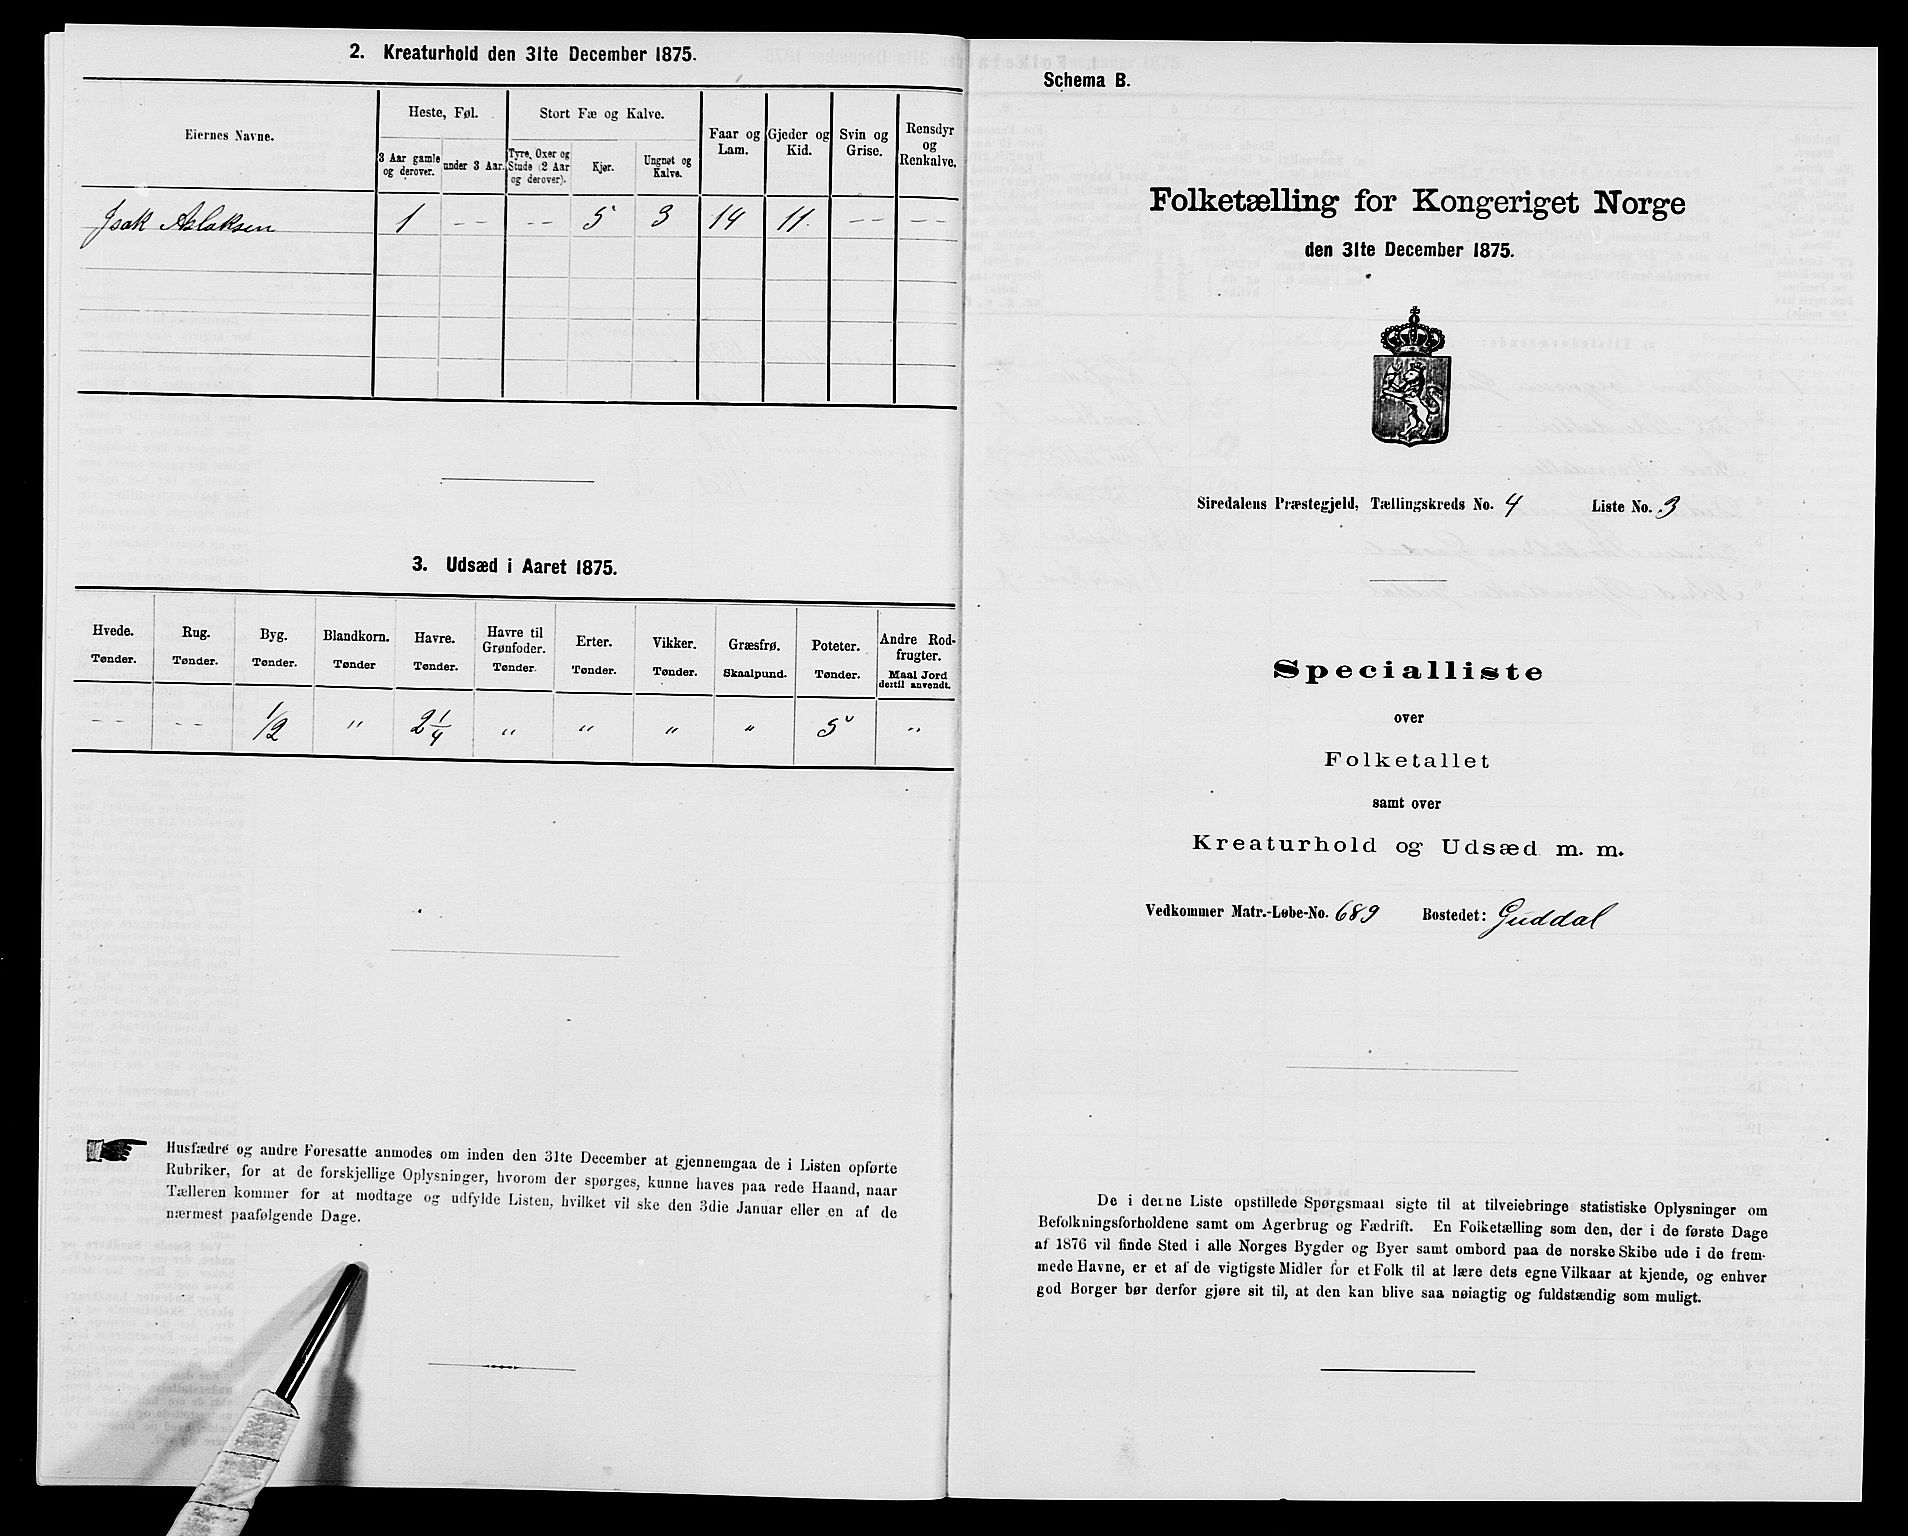 2. Kreaturhold den 31te December 1875.
Eiernes Navne.
Heste, Føl.
Stort Fæ og Kalve.
Faar og Lam.
Gjeder og Kid.
Svin og Grise.
Rensdyr og Renkalve.
3 Aar gamle og derover.
under 3 Aar.
Tyre, Oxer og Stude (2 Aar og derover).
Kjør.
Ungnøt og Kalve.
Isak Aslaksen 1 -- -- 5 3 14 11. -- --
3. Udsæd i Aaret 1875.
Hvede. Rug. Byg. Blandkorn. Havre. Havre til Grønfoder. Erter. Vikker. Græsfrø. Poteter. Andre Rodfrugter.
Tønder. Tønder. Tønder. Tønder Tønder. Tønder Tønder. Tønder. Skaalpund. Tønder. Maal Jord dertil anvendt.
-- -- 1/2 " 2 1/4 " " " " 5 "
Husfædre og andre Foresatte anmodes om inden den 31te December at gjennemgaa de i Listen opførte
Rubriker, for at de forskjellige Oplysninger, hvorom der spørges, kunne haves paa rede Haand, naar
Tælleren kommer for at modtage og udfylde Listen, hvilket vil ske den 3die Januar eller en af de
nærmest paafølgende Dage.
Schema B.
Folketælling for Kongeriget Norge
den 31te December 1875.
Siredalens Præstegjeld, Tællingskreds No. 4 Liste No. 3
Specialliste
over
Folketallet
samt over
Kreaturhold og Udsæd m. m.
Vedkommer Matr.-Løbe-No. 689 Bostedet: Guddal
De i denne Liste opstillede Spørgsmaal sigte til at tilveiebringe statistiske Oplysninger om
Befolkningsforholdene samt om Agerbrug og Fædrift. En Folketælling som den, der i de første Dage
af 1876 vil finde Sted i alle Norges Bygder og Byer samt ombord paa de norske Skibe ude i de frem-
mede Havne, er et af de vigtigste Midler for et Folk til at lære dets egne Vilkaar at kjende, og enhver
god Borger bør derfor gjøre sit til, at den kan blive saa nøiagtig og fuldstændig som muligt.